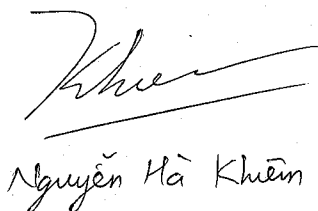 Khiêm
Nguyễn Hà Khiêm